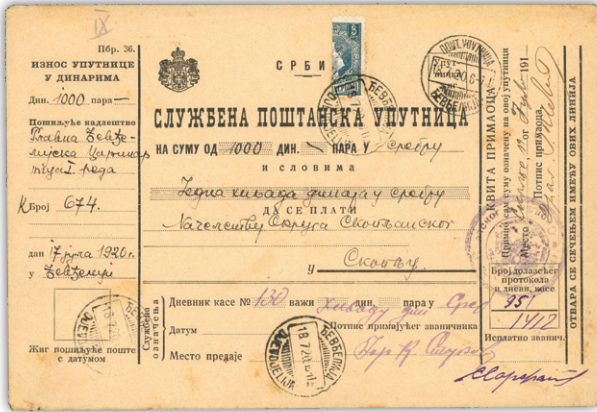 IX
Пбр. 36.
ИЗНОС УПУТНИЦЕ
У ДИНАРИМА
Дин. 1000 пара —
Пошиљуће надлештво
Главна Ђевђе-
лијска Царинар
ница I реда
К Број 674.
дан 17 јула 1920 г.
у Ђевђелији
Жиг пошиљуће поште
с датумом
СРБИ
СЛУЖБЕНА ПОШТАНСКА УПУТНИЦА
НА СУМУ ОД 1000 ДИН. — ПАРА У сребру
И СЛОВИМА
Једна хиљада динара у сребру
ДА СЕ ПЛАТИ
Начелству Округа Скопљанског
у Скопљу
Службена
означења
Дневник касе № 130 важи хиљаду дин. пара у Среб
Датум
Потпис примајућег званичника
Место предаје
ПОШТ. УПУТНИЦА
ЂЕВЂЕЛИЈА
ЂЕВЂЕЛИЈА
DJEVDJELIJA
ЂЕВЂЕЛИЈА
18 7 20
DJEVDJELIJA
ЂЕВЂЕЛИЈА
DJEVDJELIJA
КВИТА ПРИМАОЦА
Примио сам суму означену на овој упутници
Место 191
Потпис примаоца,
Број долазећег
протокола
и дневн. касе
951
1412
Исплатно званич.
ОТВАРА СЕ СЕЧЕЊЕМ ИМЕЂУ ОВИХ ЛИНИЈА